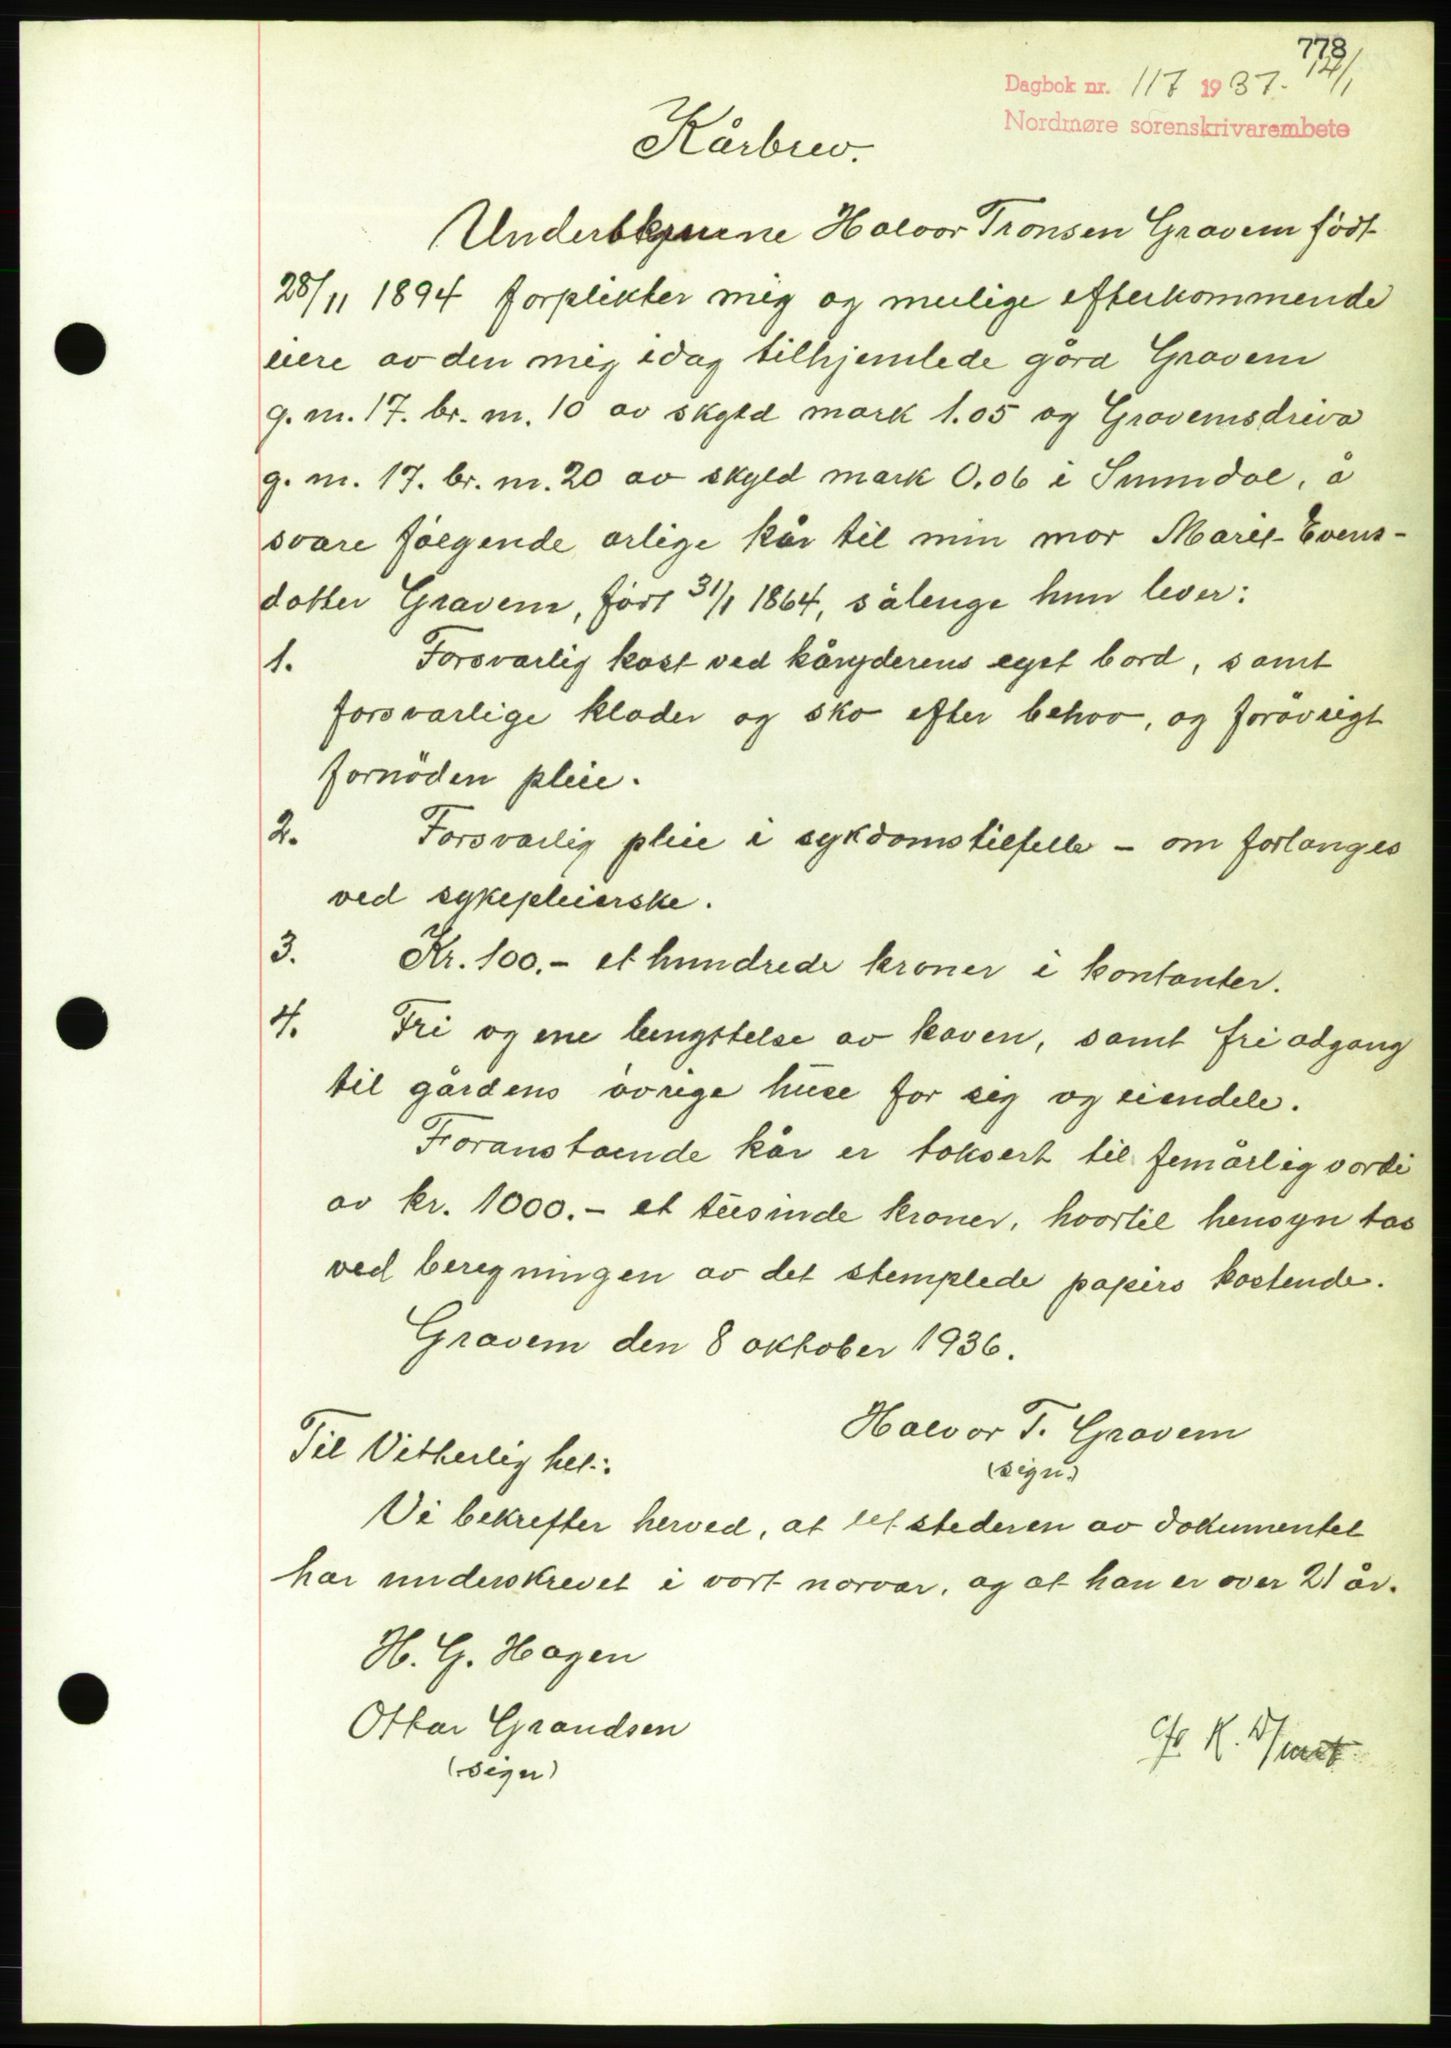 778
14/1
Dagbok nr. 117 1937.
Nordmøre sorenskrivarembete
Kårbrev.
Halvor Tronsen Gravem født
28/11 1894 forplikter mig og mulige efterkommende
eiere av den mig idag tilhjemlede gård Gravem
g. nr. 17. br. nr. 10 av skyld mark 1.05 og Gravemsdriva
g. nr. 17. br. nr. 20 av skyld mark 0.06 i Sunndal, å
svare følgende årlige kår til min mor Marit Evens-
datter Gravem, født 31/1 1864, sålenge hun lever:
1. Forsvarlig kost ved kåryderens eget bord, samt
forsvarlige klæder og sko efter behov, og forövrigt
fornöden pleie.
2. Forsvarlig pleie i sykdomstilfelle - om forlanges
ved sykepleierske.
3. Kr. 100.- et hundrede kroner i kontanter.
4. Fri og ene benyttelse av kåven, samt fri adgang
til gårdens övrige huse for sig og eiendele.
Foranstående kår er taksert til femårlig verdi
av kr. 1000.- et tusinde kroner, hvortil hensyn tas
ved beregningen av det stemplede papirs kostende.
Gravem den 8 oktober 1936.
Halvor T. Gravem
(sign.)
Til Vitterlighet:
Vi bekrefter herved, at utstederen av dokumentet
har underskrevet i vort nærvær, og at han er over 21 år.
H. G. Hagen
Ottar Grandsen
(sign)
K.